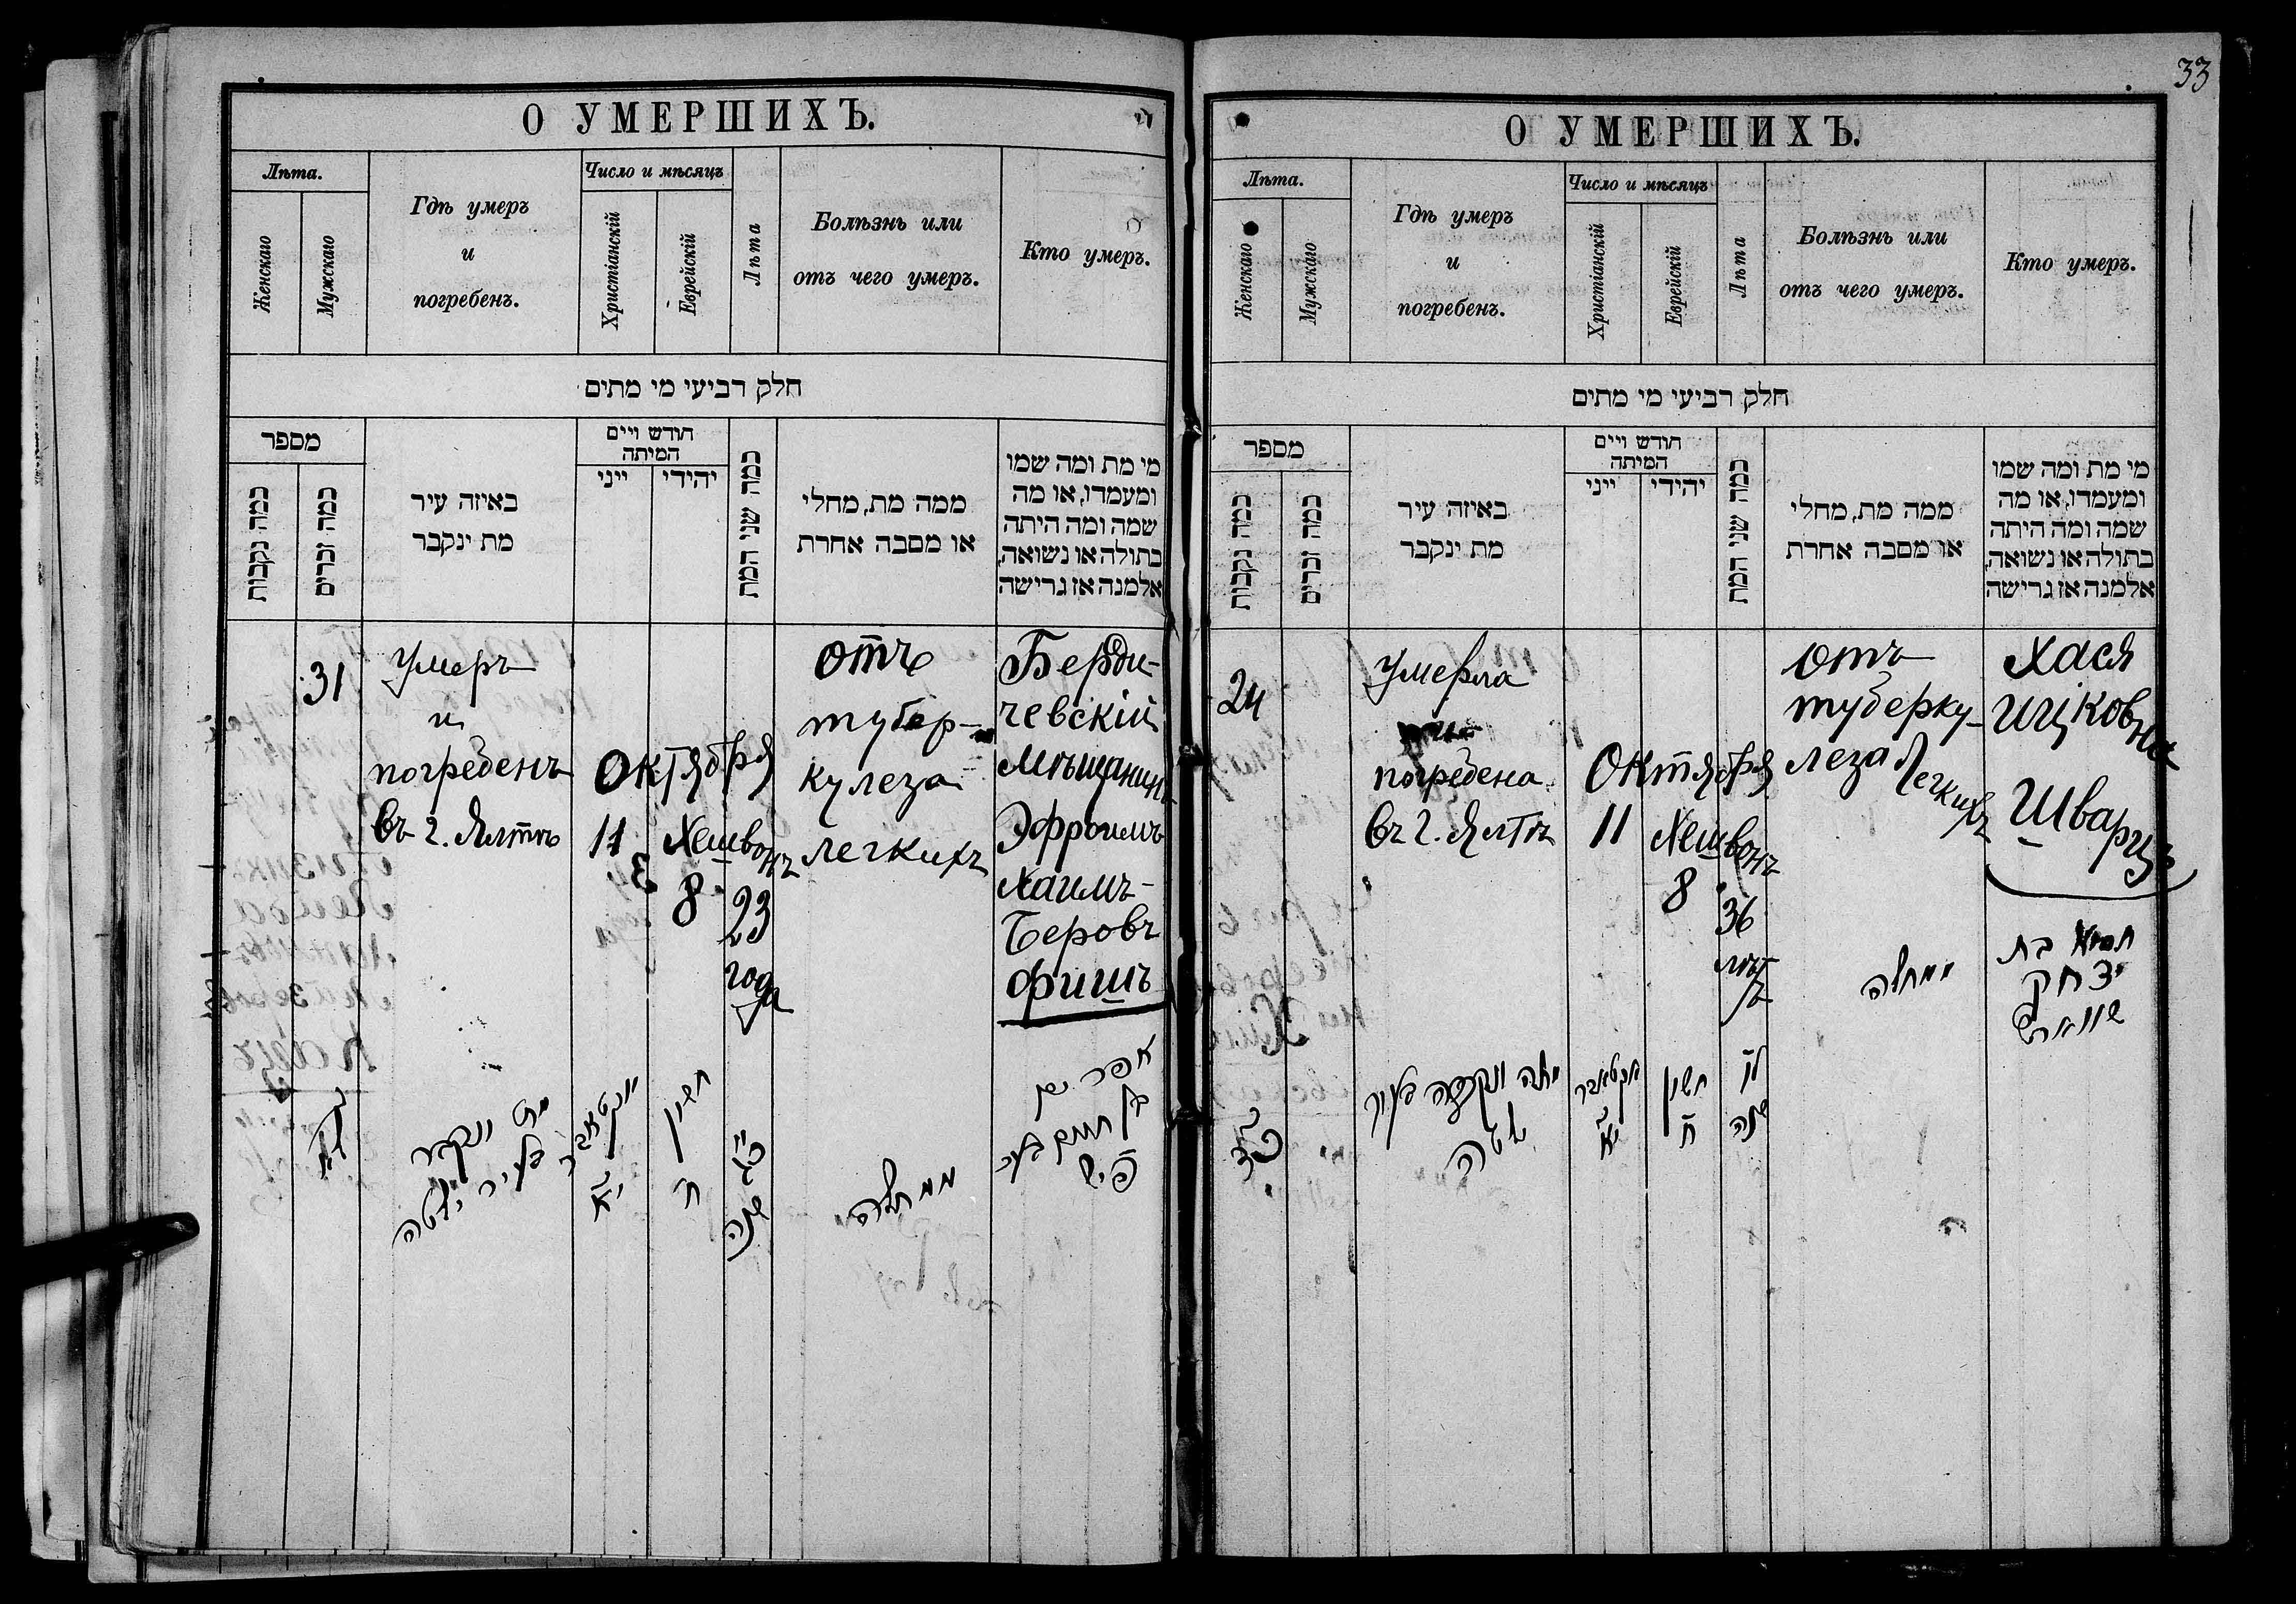 33
О УМЕРШИХЪ.
Лѣта.
Женскаго
Мужскаго
Гдѣ умеръ
и
погребенъ.
Число и мѣсяцъ
Христіанскій
Еврейскій
Лѣта
Болѣзнь или
отъ чего умеръ.
Кто умеръ.
חלק רביעי מי מתים
מספר
כמה נקבות
כמה זכרים
באיזה עיר
מת ינקבר
חודש ויים
המיתה
ייני
יהידי
כמה שני המת
ממה מת, מחלי
או מסבה אחרת
מי מת ומה שמו
ומעמדו, או מה
שמה ומה היתה
בתולה או נשואה,
אלמנה אז גרישה
31
Умеръ
и
погребенъ
въ г. Ялтѣ
Октября
11
Хешвонъ
8
23
года
отъ
тубер-
кулеза
легкихъ
Берди-
чевскій
Мѣщанинъ
Эфроимъ
Хаимъ-
Беровъ
Фишъ
לא
מת ונקבר
בעיר יאלטה
אקטאבר
יא
חשון
ח
כג
שנה
ממחלה
אפרים
בן חיים בער
פיש
О УМЕРШИХЪ.
Лѣта.
Женскаго
Мужскаго
Гдѣ умеръ
и
погребенъ.
Число и мѣсяцъ
Христіанскій
Еврейскій
Лѣта
Болѣзнь или
отъ чего умеръ.
Кто умеръ.
חלק רביעי מי מתים
מספר
כמה נקבות
כמה זכרים
באיזה עיר
מת ינקבר
חודש ויים
המיתה
ייני
יהידי
כמה שני המת
ממה מת, מחלי
או מסבה אחרת
מי מת ומה שמו
ומעמדו, או מה
שמה ומה היתה
בתולה או נשואה,
אלמנה אז גרישה
24
Умерла
погребена
въ г. Ялтѣ
Октября
11
Хешвонъ
8
36
лѣтъ
отъ
туберку-
леза Легкихъ
Хася
Ицковна
Шварцъ
בת
יצחק
שווארץ
ממחלה
כד
מתה ונקברה בעיר
יאלטה
אקטאבר
יא
חשון
ח
לו
שנה